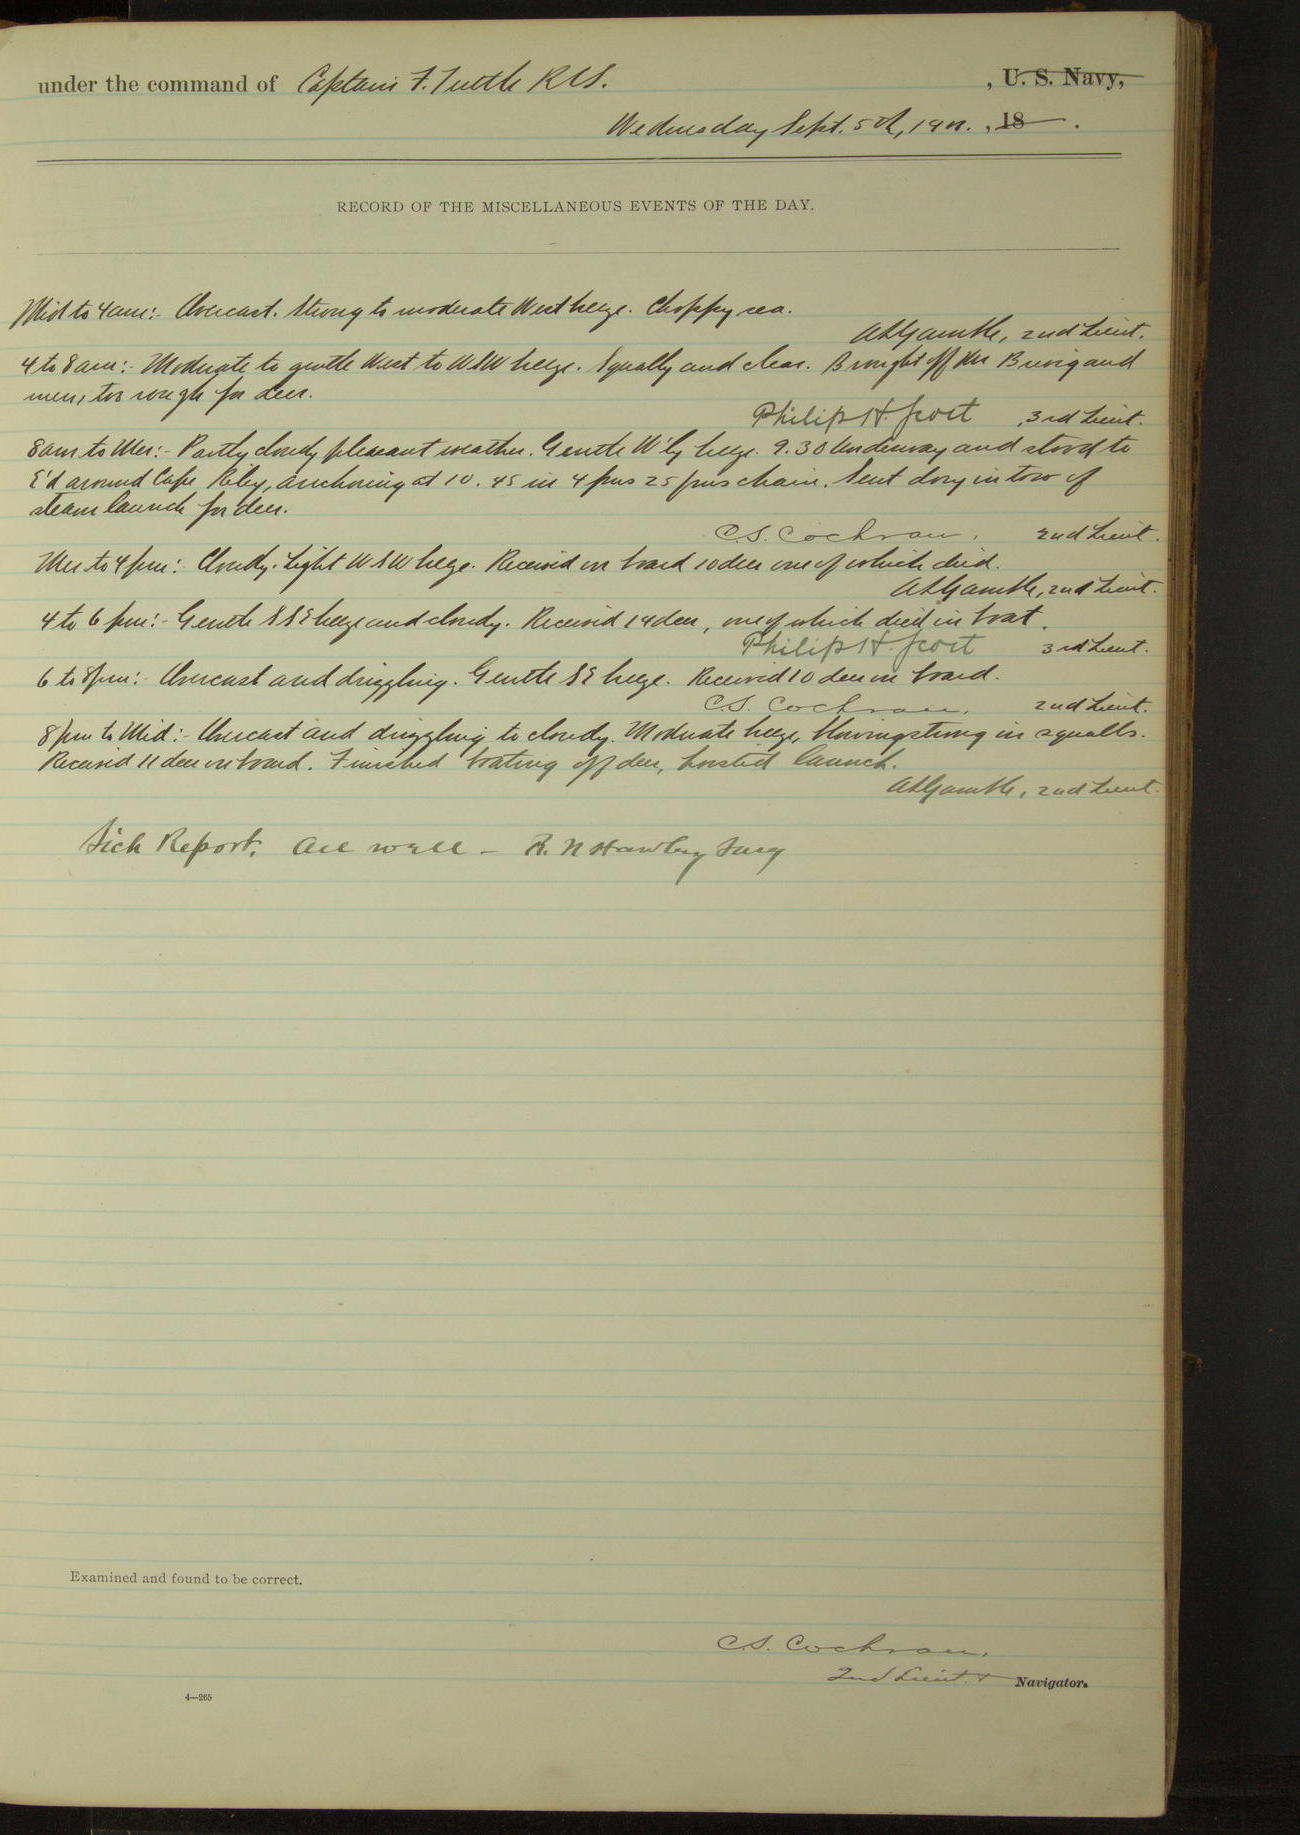 under the command of Captain F. Tuttle R.C.S. , U. S. Navy,
Wednesday Sept. 5th, 1900. , 18 .
RECORD OF THE MISCELLANEOUS EVENTS OF THE DAY.
Mid to 4 am:- Overcast. Strong to moderate West breeze. Choppy sea.
A L Gamble, 2nd Lieut.
4 to 8 am:- Moderate to gentle West to WSW breeze. Squally and clear. Brought off Mr Buvig and
men, too rough for deer.
Philip H. Scott , 3rd Lieut.
8 am to Mer:- Partly cloudy pleasant weather. Gentle W'ly breeze. 9.30 Underway and stood to
E'd around Cape Riley, anchoring at 10.45 in 4 fms 25 fms chain. Sent dory in tow of
steam launch for deer.
C.S. Cochran. 2nd Lieut.
Mer to 4 pm:- Cloudy. Light WSW breeze. Received on board 10 deer one of which died.
A L Gamble, 2nd Lieut.
4 to 6 pm:- Gentle SSE breeze and cloudy. Received 14 deer, one of which died in boat.
Philip H. Scott 3rd Lieut.
6 to 8 pm:- Overcast and drizzling. Gentle SE breeze. Received 10 deer on board.
C.S. Cochran. 2nd Lieut.
8 pm to Mid:- Overcast and drizzling to cloudy. Moderate breeze, blowing strong in squalls.
Received 11 deer on board. Finished boating off deer, hoisted launch.
A L Gamble, 2nd Lieut.
Sick Report. All well - R. N Hawley Surg
Examined and found to be correct.
C.S. Cochran.
2nd Lieut. + Navigator.
4—265